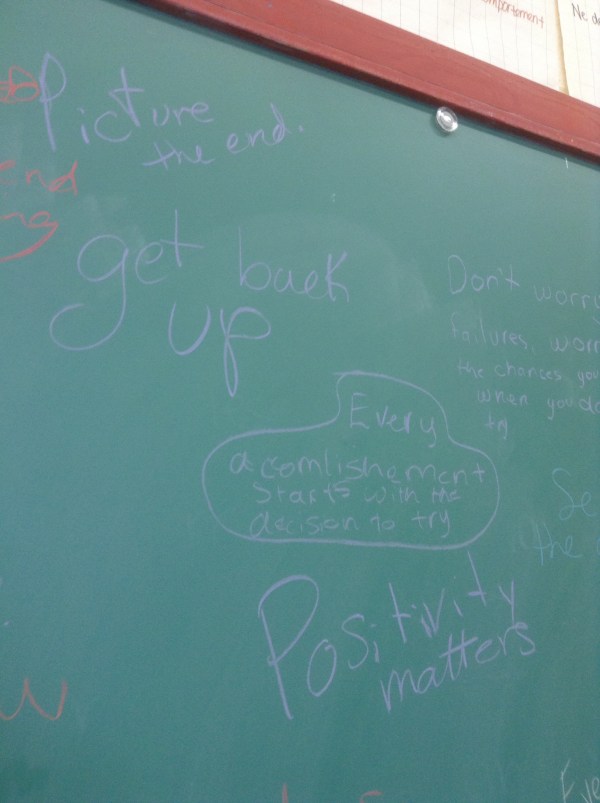 comportement
Ne de
Picture
the end.
End
get back
up
Don't worry
failures, worr
the chances you
when you do
try
Every
acomlishement
starts with the
decision to try
Se
the
Positivity
matters
w
Eve